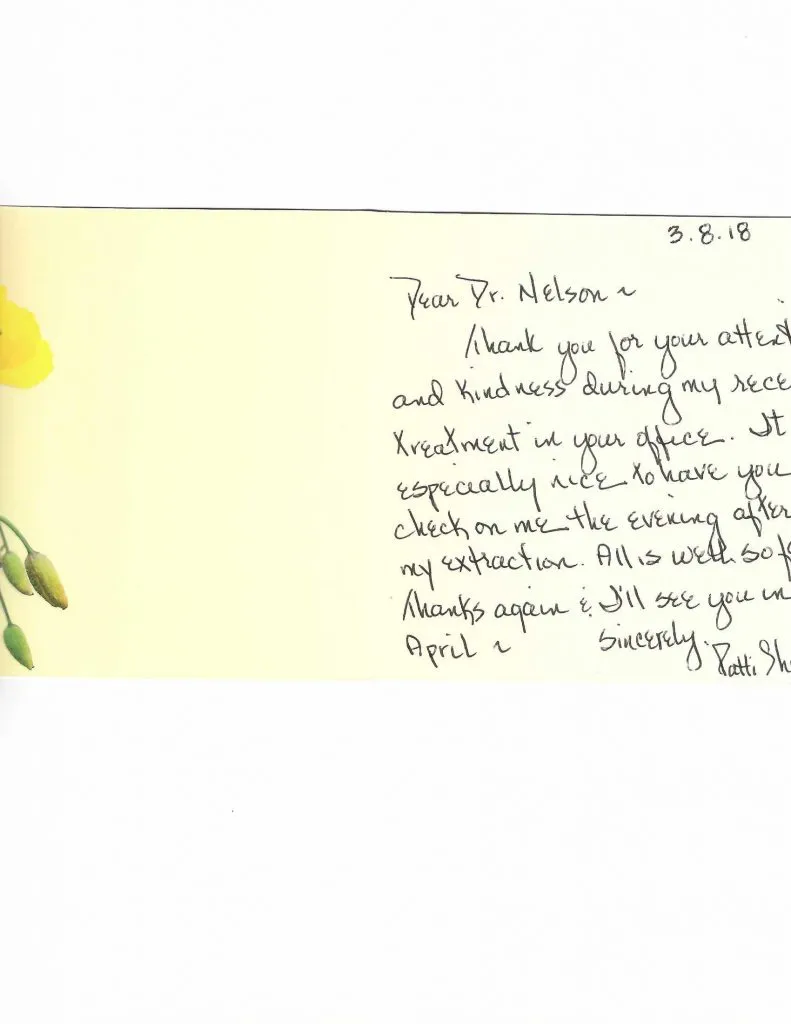 3.8.18
Dear Dr. Nelson ~
Thank you for your attent
and kindness during my rece
treatment in your office. It
especially nice to have you
check on me the evening after
my extraction. All is well so f
Thanks again & I'll see you in
April ~ Sincerely,
Patti Sh